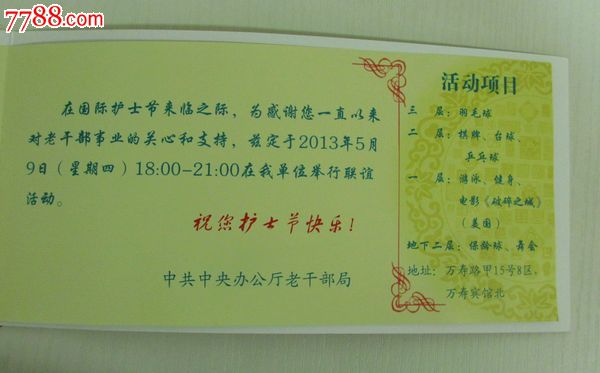 7788.com
在国际护士节来临之际，为感谢您一直以来
对老干部事业的关心和支持，兹定于2013年5月
9日（星期四）18:00-21:00在我单位举行联谊
活动。
祝您护士节快乐！
中共中央办公厅老干部局
活动项目
三 层：羽毛球
二 层：棋牌、台球、
乒乓球
一 层：游泳、健身、
电影《破碎之城》
（美国）
地下二层：保龄球、舞会
地址：万寿路甲15号8区，
万寿宾馆北